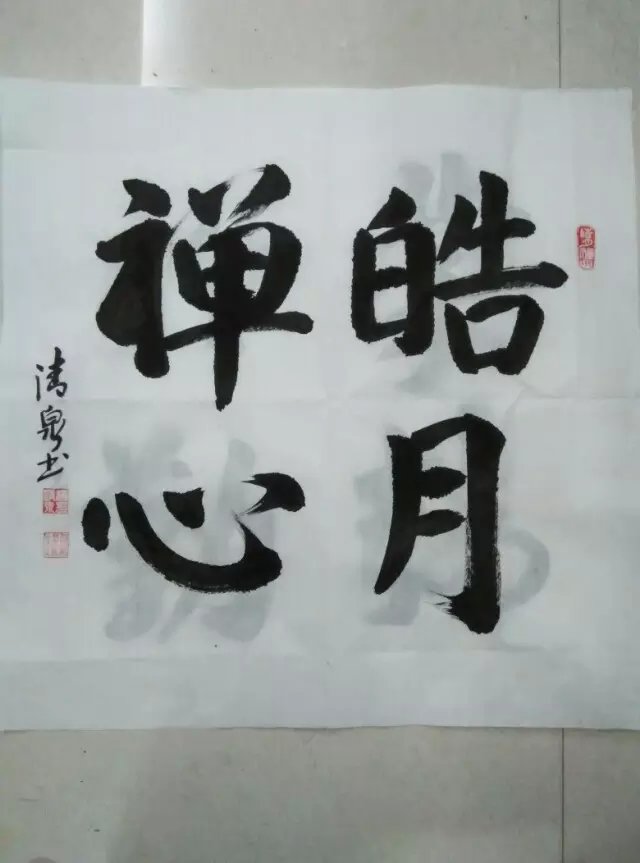 皓月
禅心
清泉书